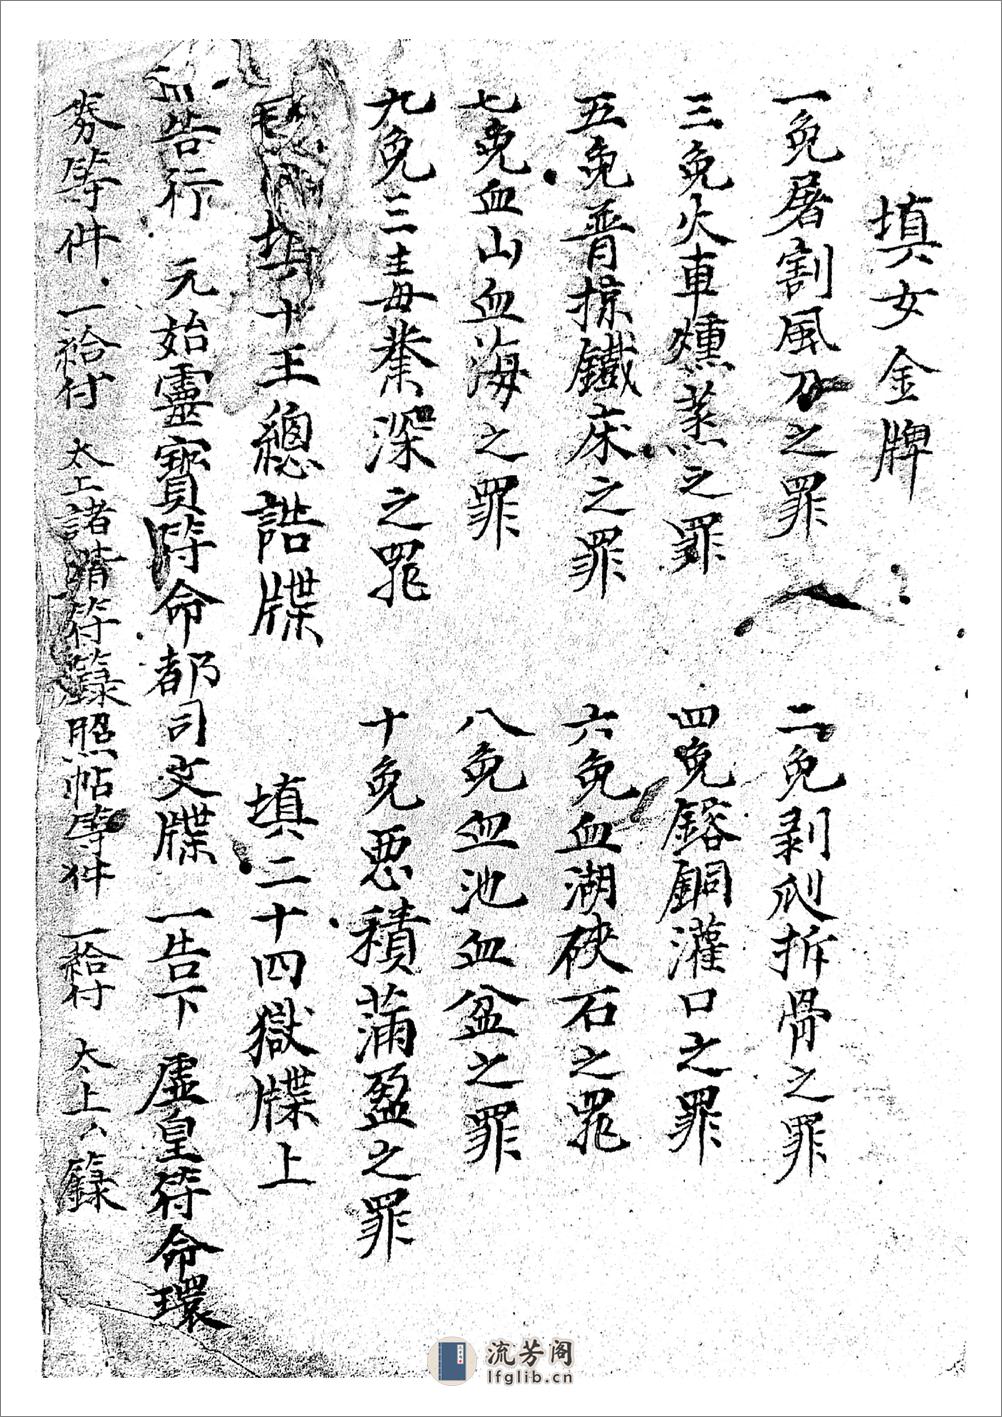 填女金牌
一免屠割風刀之罪 二免剥爬拆骨之罪
三免火車燻蒸之罪 四免鎔銅灌口之罪
五免普掠鐵床之罪 六免血湖硤石之罪
七免血山血海之罪 八免血池血盆之罪
九免三毒業深之罪 十免惡積滿盈之罪
填十王總誥牒 填二十四獄牒上
告行 元始靈寶符命都司文牒 一告下 虛皇符命環
券等件 一給付 太上諸階符籙照帖等件 一給付 太上 籙
流芳阁
lfglib.cn